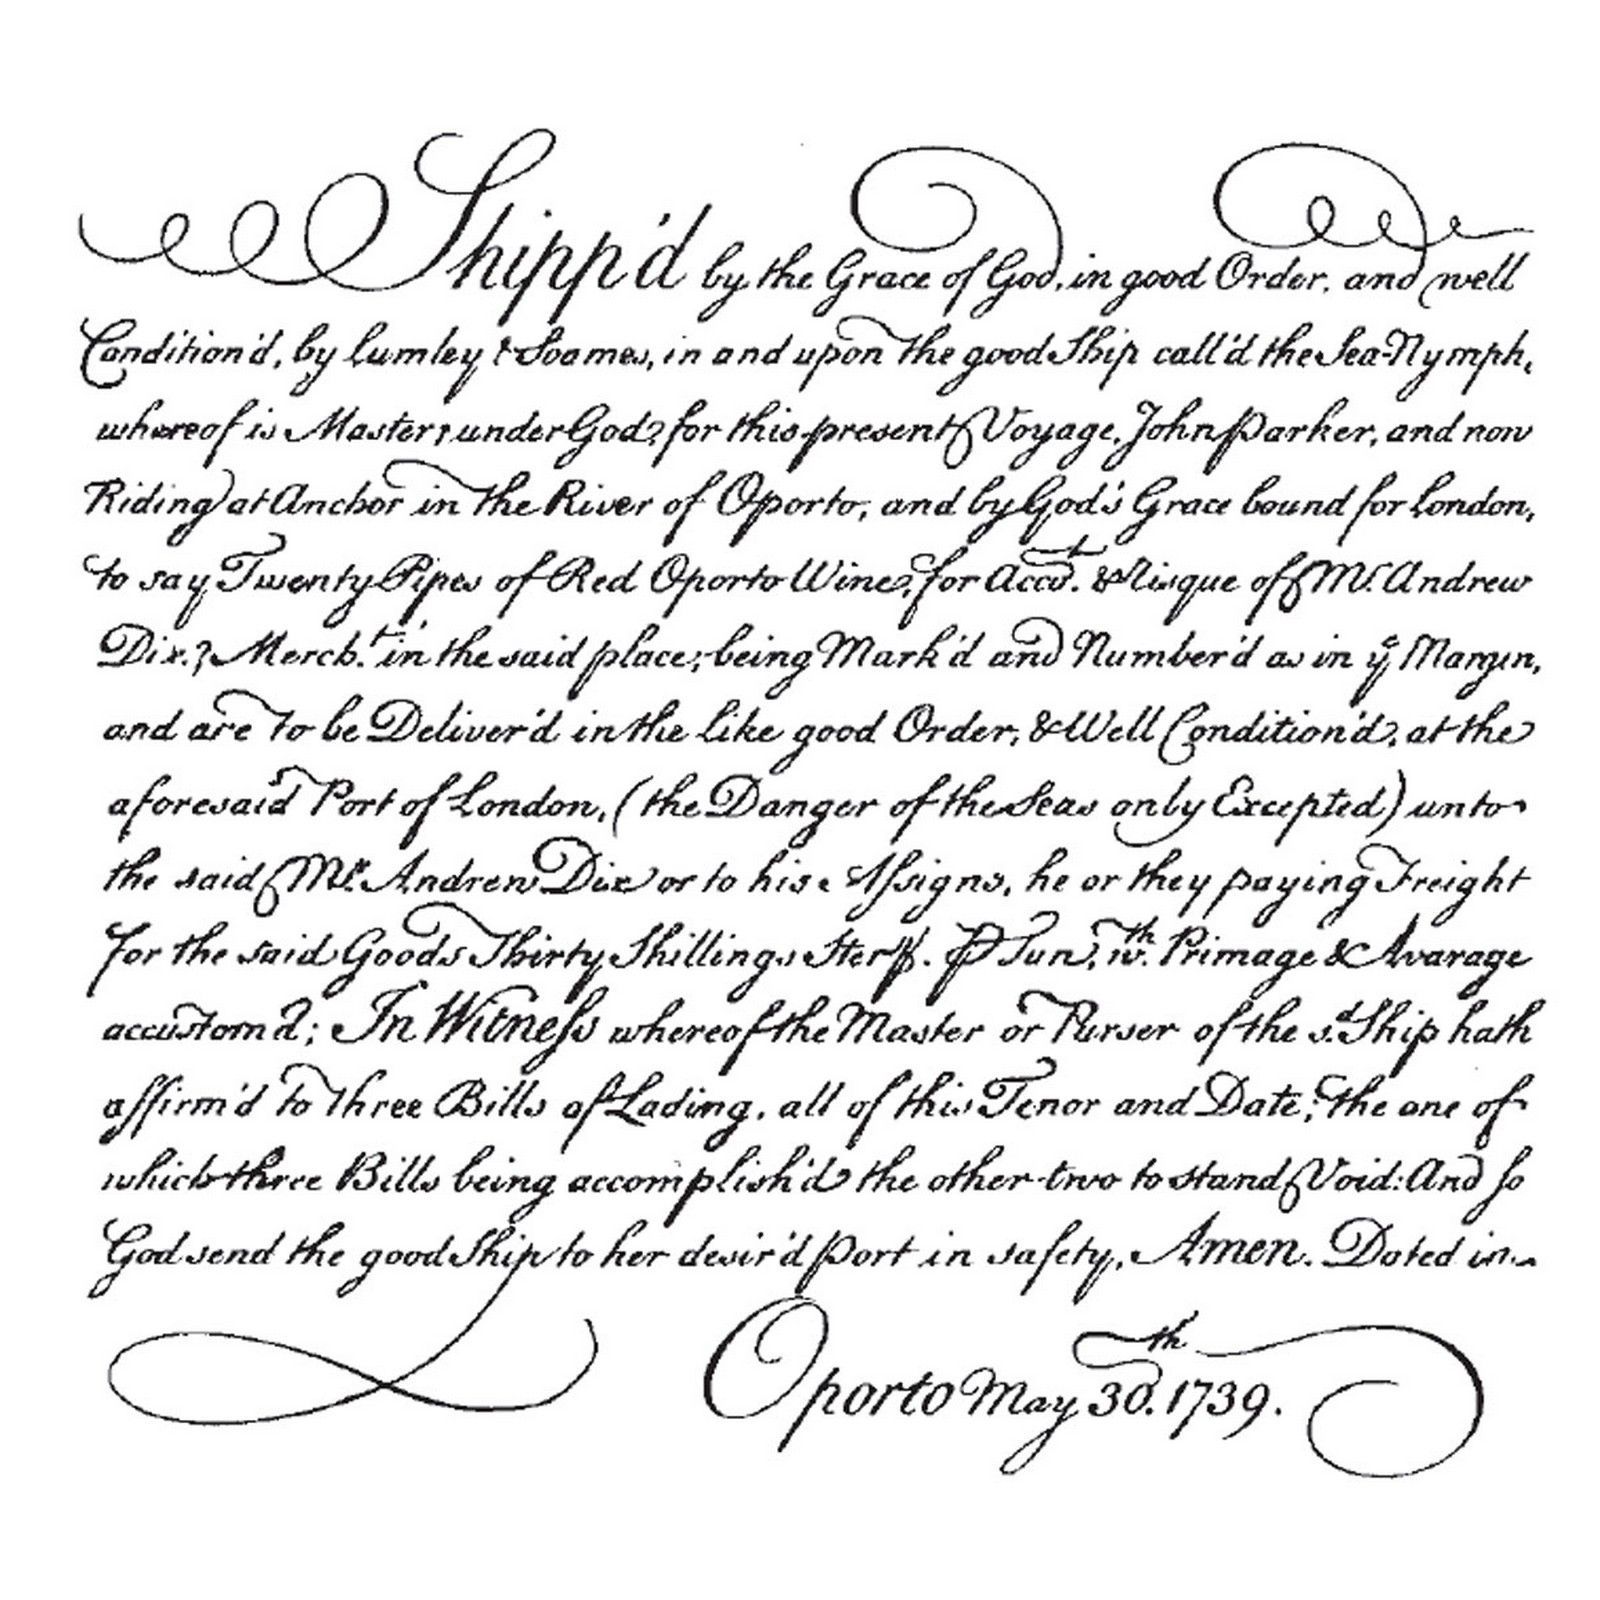 Shipp'd by the Grace of God, in good Order, and well
Condition'd, by Lumley & Soames, in and upon the good Ship call'd the Sea-Nymph,
whereof is Master, under God, for this present Voyage, John Parker, and now
Riding at Anchor in the River of Oporto, and by God's Grace bound for London,
to say Twenty Pipes of Red Oporto Wine, for Acco.t & Risque of Mr. Andrew
Dix, Merch.t in the said place; being Mark'd and Number'd as in ye Margin,
and are to be Deliver'd in the like good Order, & Well Condition'd, at the
aforesaid Port of London, (the Danger of the Seas only Excepted) unto
the said Mr. Andrew Dix or to his Assigns, he or they paying Freight
for the said Goods Thirty Shillings Ster. ⅌ Tun, w.th Primage & Avarage
accustom'd; In Witness whereof the Master or Purser of the s.d Ship hath
affirm'd to three Bills of Lading, all of this Tenor and Date; the one of
which three Bills being accomplish'd the other two to stand Void: And so
God send the good Ship to her desir'd Port in safety, Amen. Dated in
Oporto May 30.th 1739.